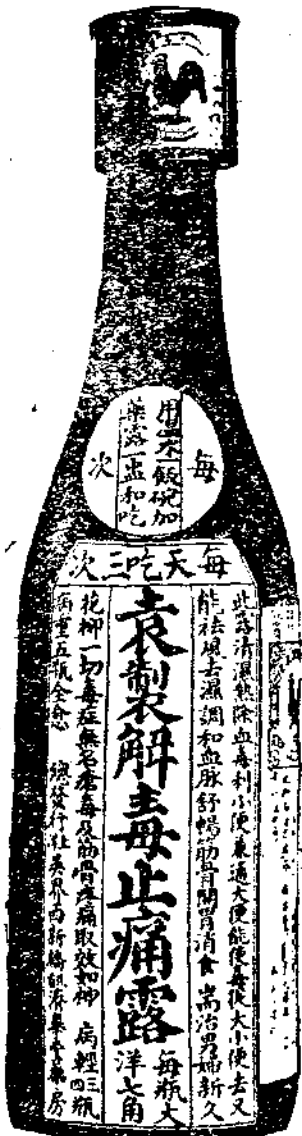 每次
用滾水一飯碗加
藥露一盅和吃
每天吃三次
此露清濕熱除血毒利小便兼通大便能使毒從大小便去又
能祛風去濕調和血脉舒暢筋骨開胃消食 耑治男婦新久
袁製解毒止痛露
每瓶大
洋七角
花柳一切毒症無名瘡毒及筋骨疼痛取效如神 病輕三四瓶
病重五瓶全愈 總發行社英界西新橋
藥房